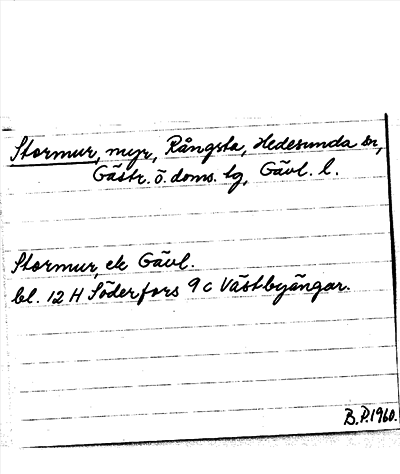 Stormur, myr, Rångsta, Hedesunda sn,
Gästr. ö. doms. tg, Gävl. l.
Stormur, ek Gävl.
bl. 12 H Söderfors 9 c Västbyängar.
B.P.1960.